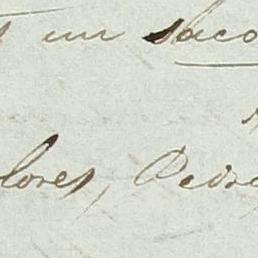 un saco
lores, Pedro